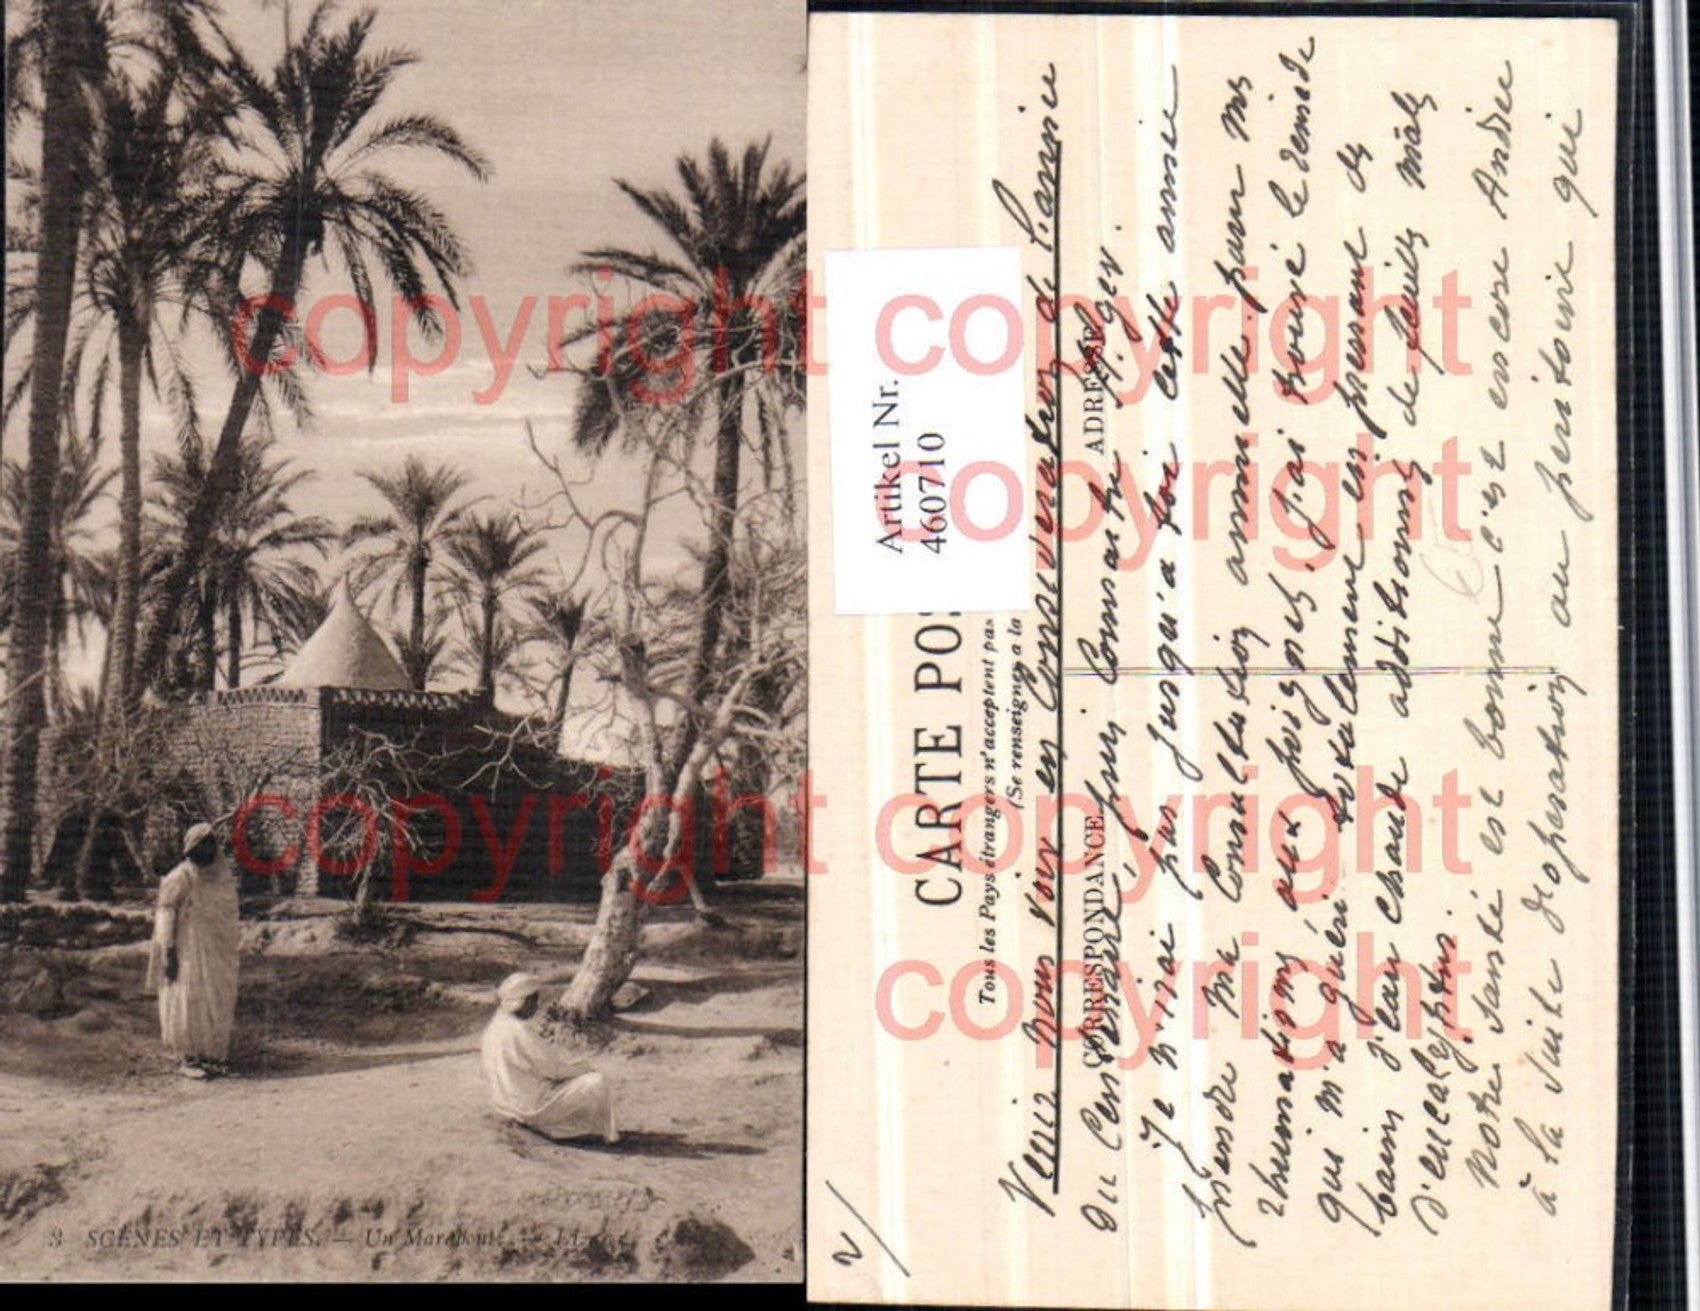 3 SCÈNES ET TYPES. — Un Marabout. — LL
copyright copyright
copyright
copyright copyright
copyright
Artikel Nr.
460710
CARTE POS
Tous les Pays étrangers n'acceptent pas
(Se renseigner à la
CORRESPONDANCE
ADRESSE
2/
Venir nous voir en Considération de l'année
du Centenaire, puis Connaître Alger.
Je n'irai pas jusqu'à toi cette année
prendre ma Consultation annuelle pour mes
rhumatismes aux poignets, j'ai trouvé le remède
qui m'a guéri totalement en prenant des
bains d'eau chaude additionnés de feuilles mâles
d'eucalyptus.
Notre santé est bonne c'est encore Andrée
à la suite d'opération au péritoine qui